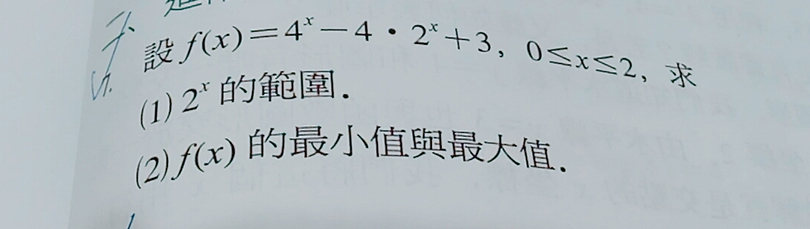 設 f(x)=4ˣ－4・2ˣ＋3，0≤x≤2，求
(1) 2ˣ 的範圍．
(2) f(x) 的最小值與最大值．